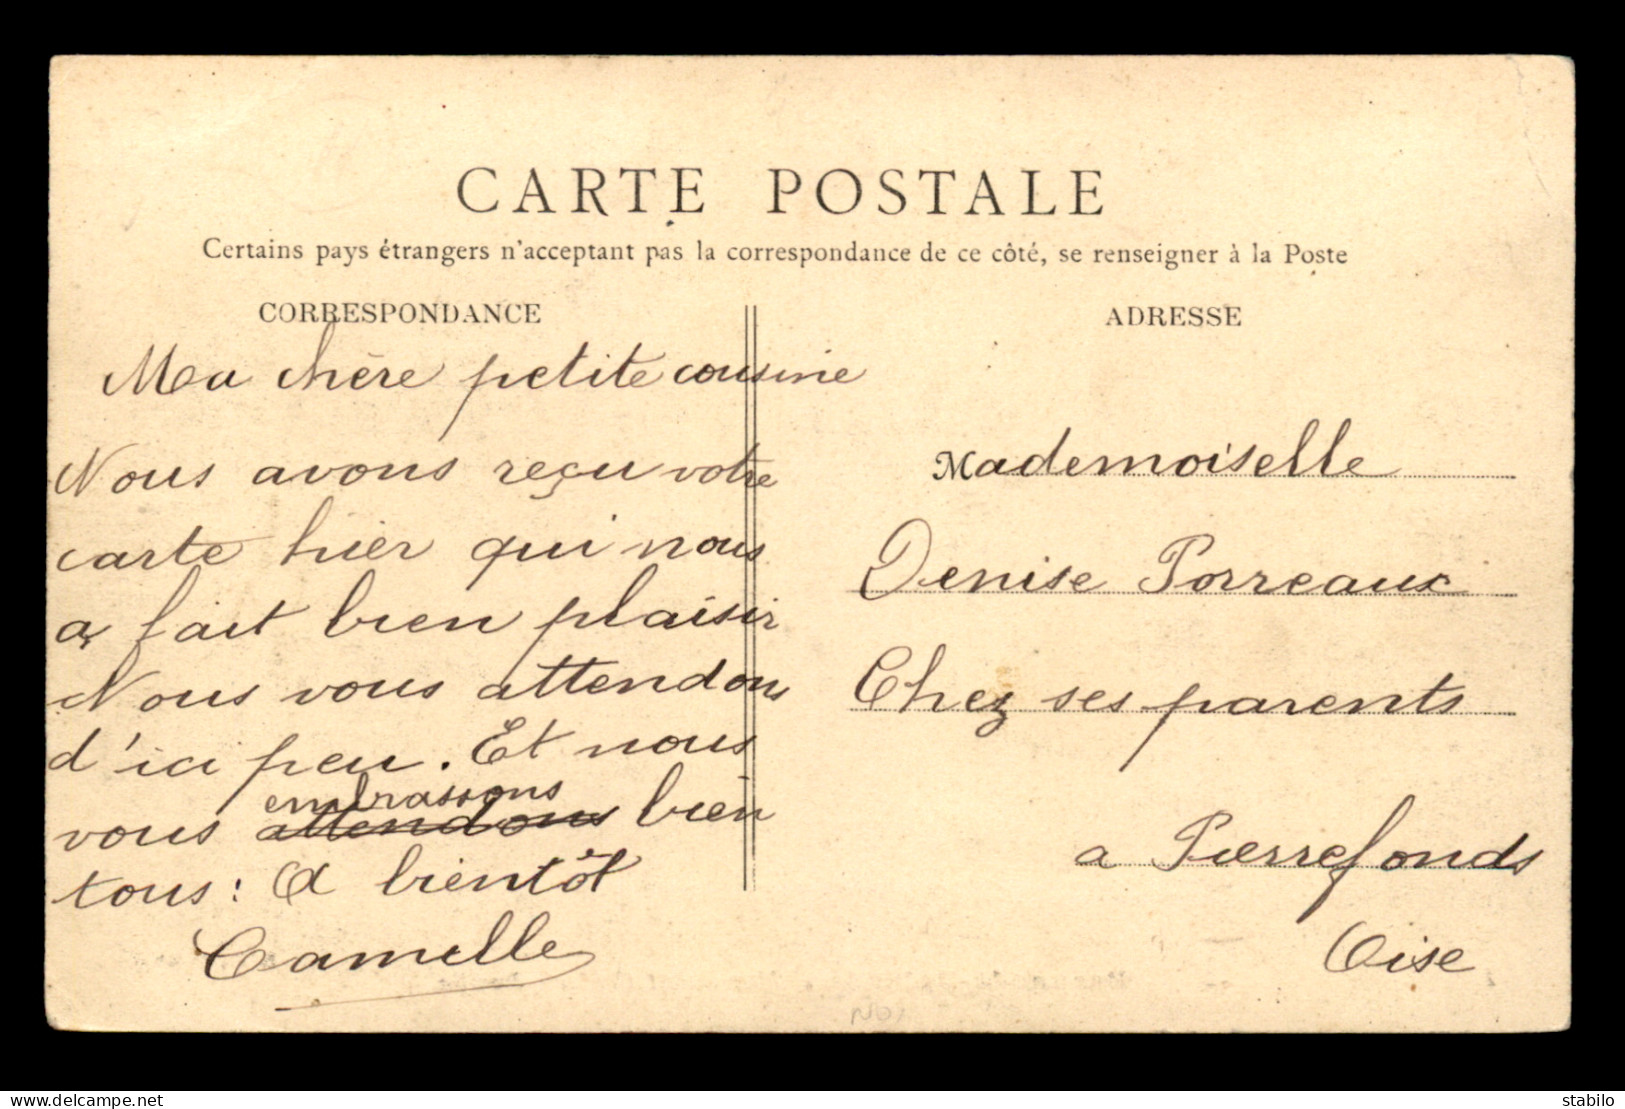 CARTE POSTALE
Certains pays étrangers n'acceptant pas la correspondance de ce côté, se renseigner à la Poste
CORRESPONDANCE
Ma chère petite cousine
Nous avons reçu votre
carte hier qui nous
a fait bien plaisir
Nous vous attendons
d'ici peu. Et nous
embrassons
vous attendons bien
tous : A bientôt
Camille
ADRESSE
Mademoiselle
Denise Porreaux
Chez ses parents
a Pierrefonds
Oise
www.delcampe.net
stabilo